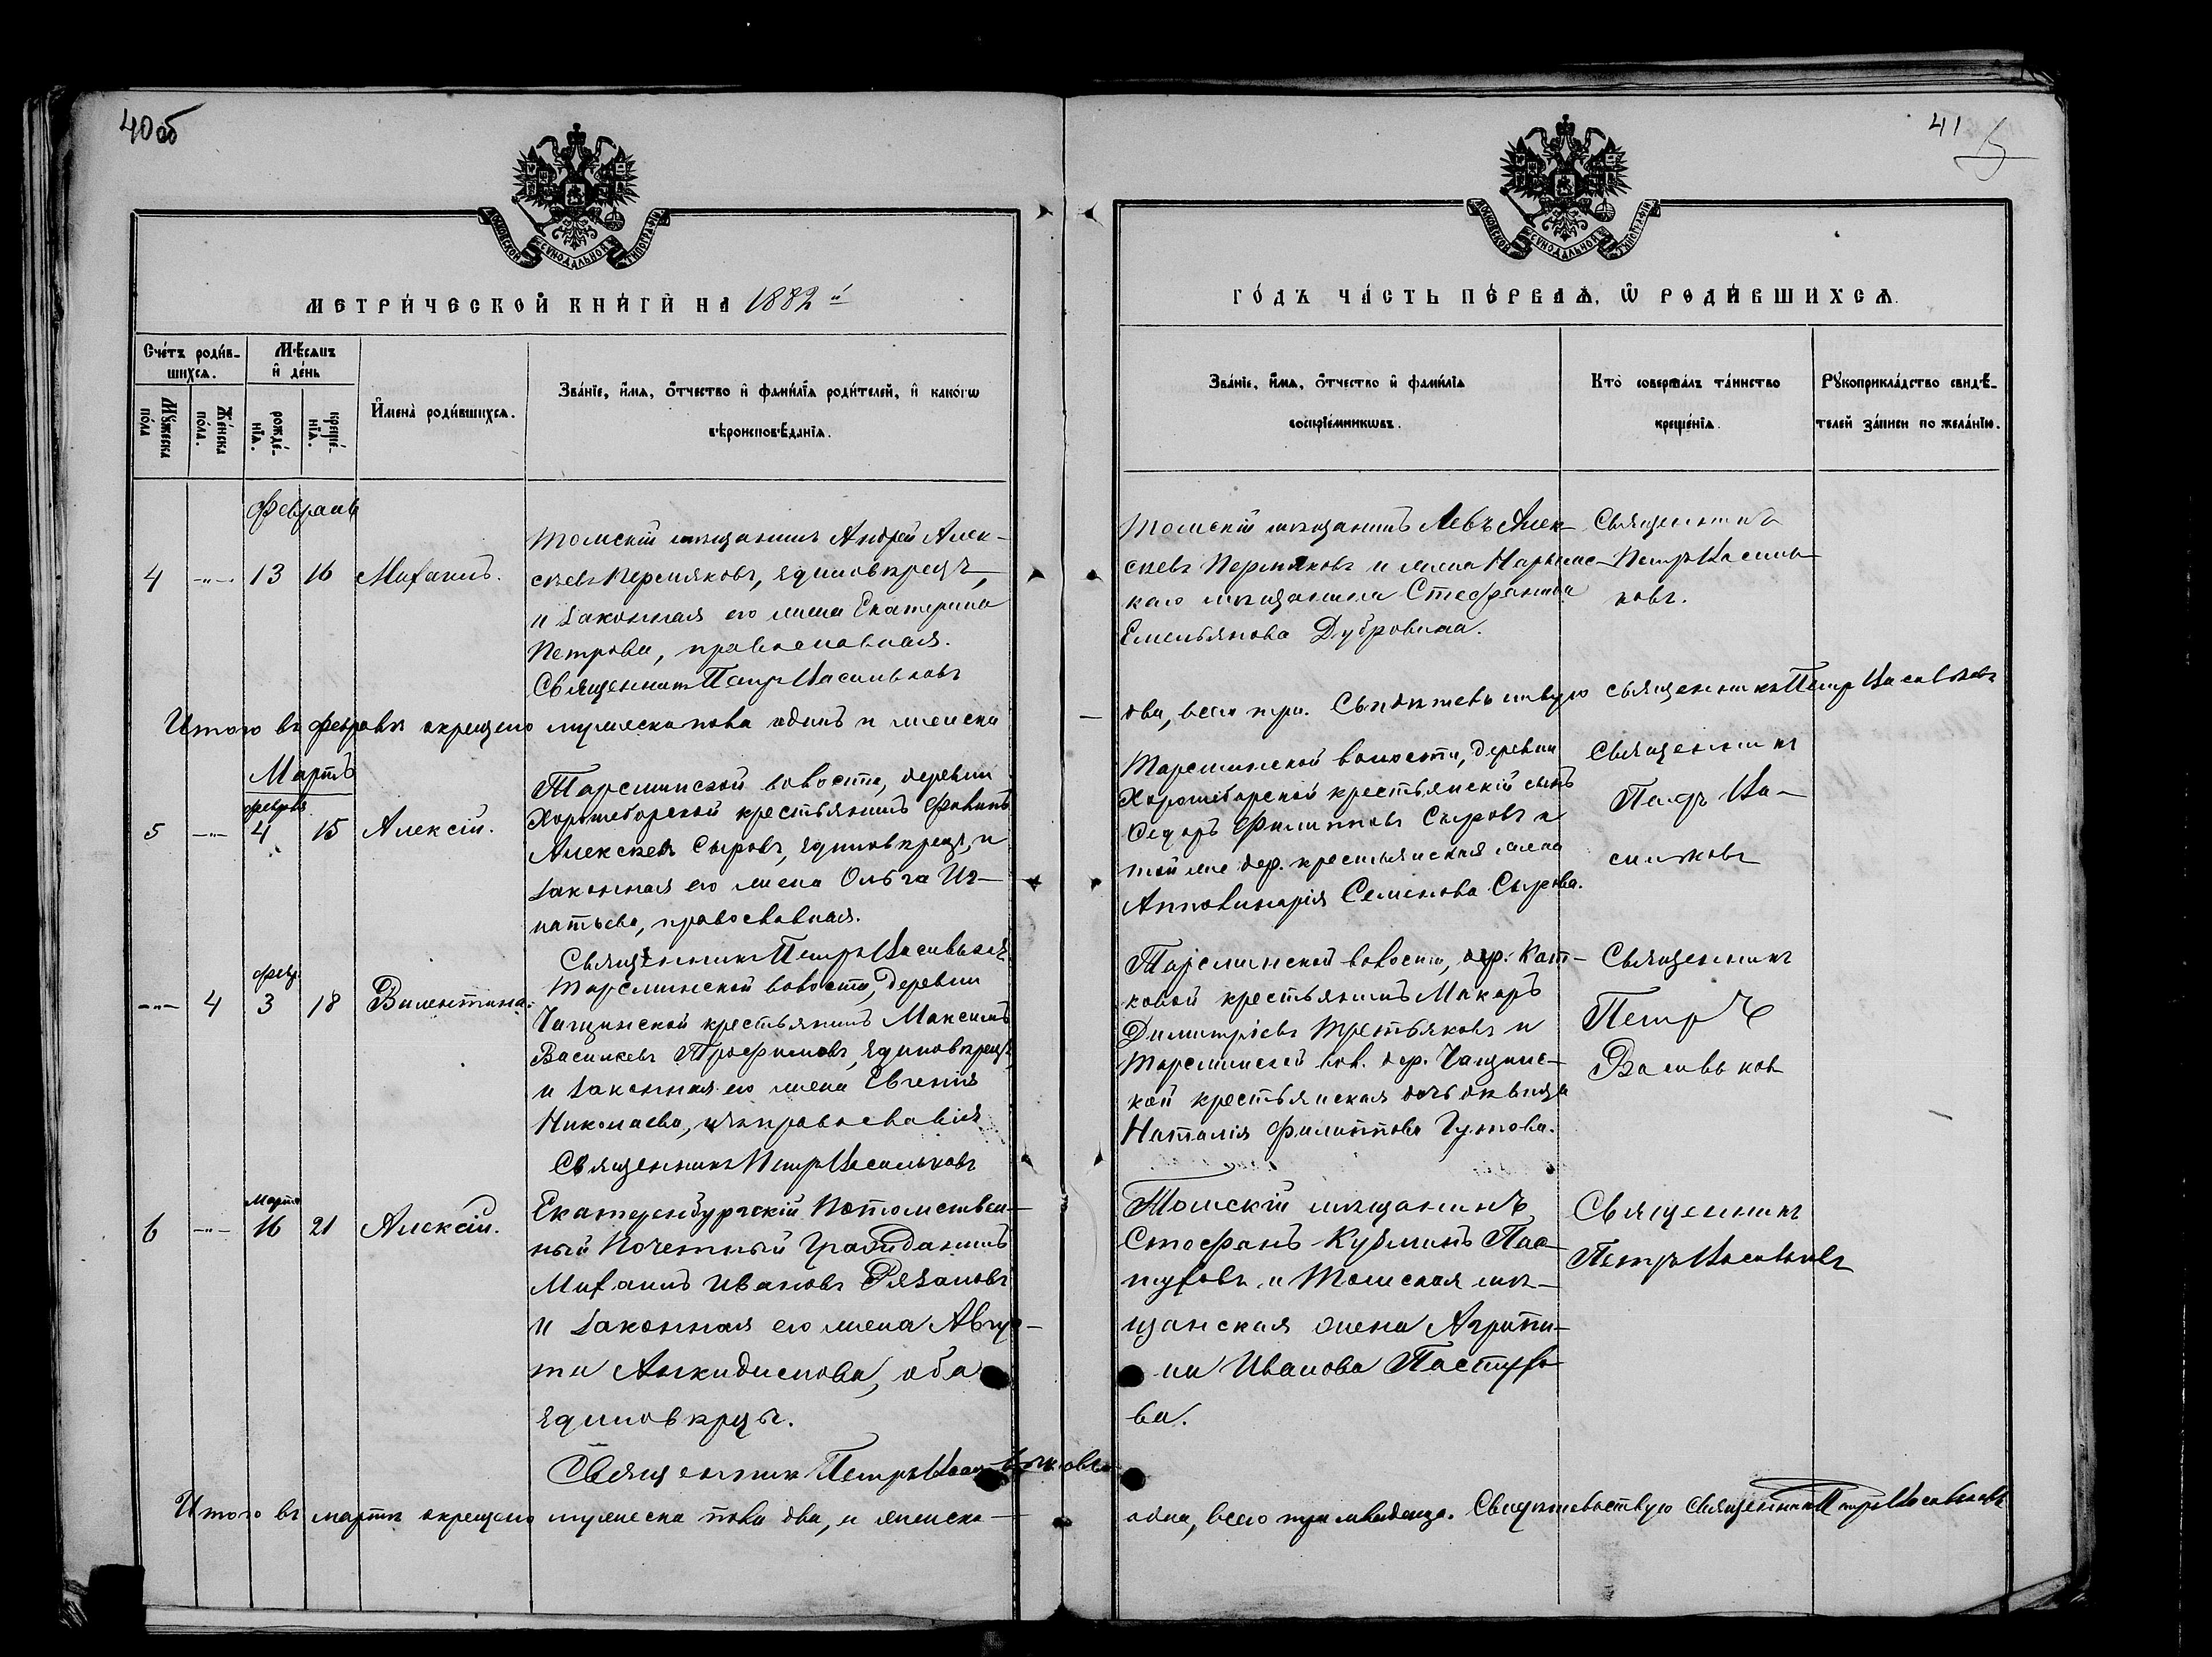 40об
МОСКОВСКОЙ СѴНОДАЛЬНОЙ ТИПОГРАФІИ
МЕТРИ́ЧЕСКОЙ КНИ́ГИ НА 1882 й
Сче́тъ роди́в-
шихсѧ.
Мѣ́сѧцъ
и҆ де́нь
Му́жеска
по́ла
Же́нска
по́ла.
рожде́-
нїѧ.
креще́-
нїѧ.
И҆мена̀ роди́вшихсѧ.
Зва́нїе, и҆́мѧ, ѻ҆́тчество и҆ фами́лїѧ роди́телей, и҆ како́гѡ
вѣроисповѣ́данїѧ.
Февраль
4 -"- 13 16 Михаилъ.
Томскій мѣщанинъ Андрей Алек-
сѣевъ Пермяковъ, единовѣрецъ,
и законная его жена Екатерина
Петрова, православная.
Священникъ Петръ Васильковъ
Итого въ февралѣ окрещено мужеска пола одинъ и женска
Мартъ
5 -"- февраля 4 15 Алексій.
Тарсминской волости, деревни
Хорошеборской крестьянинъ
Алексѣевъ Сыровъ, единовѣрецъ, и
законная его жена Ольга Иг-
натьева, православная.
Священникъ Петръ Васильковъ
-"- 4 февр. 3 18 Валентина.
Тарсминской волости, деревни
Чащинской крестьянинъ Максимъ
Василіевъ Трофимовъ, единовѣрецъ,
и законная его жена Евгенія
Николаева, православія
Священникъ Петръ Васильковъ
6 -"- Марта 16 21 Алексій.
Екатеренбургскій Потомствен-
ный Почетный Гражданинъ
Михаилъ Ивановъ Рязановъ
и законная его жена Авгус-
та Алкидисмова, оба
единовѣрцы.
Священникъ Петръ Васильковъ
Итого въ мартѣ окрещено мужеска пола два, и женска
41
МОСКОВСКОЙ СѴНОДАЛЬНОЙ ТИПОГРАФІИ
ГО́ДЪ ЧА́СТЬ ПЕ́РВАѦ, Ѡ҆ РОДИ́ВШИХСѦ.
Зва́нїе, и҆́мѧ, ѻ҆́тчество и҆ фами́лїѧ
воспрїе́мникѡвъ.
Кто̀ соверша́лъ та́инство
креще́нїѧ.
Рꙋкоприкла́дство свидѣ́-
телей за́писи по жела́нїю.
Томскій мѣщанинъ Левъ Алек-
сѣевъ Пермяковъ и жена Нарымс-
каго мѣщанина Стефанида
Емельянова Дубровина.
Священникъ
Петръ Василь-
ковъ.
два, всего три. Свидѣтельствую священникъ Петръ Васильковъ
Тарсминской волости, деревни
Хорошеборской крестьянскій сынъ
Ѳедоръ Филипповъ Сыровъ и
той же дер. крестьянская жена
Апполинарія Семенова Сырова.
Священникъ
Петръ Ва-
сильковъ
Тарсминской волости, дер. Кот-
ковой крестьянинъ Макаръ
Димитріевъ Третьяковъ и
Тарсминской вол. дер. Чащинс-
кой крестьянская дочь дѣвица
Наталія Филиппова Гутова.
Священникъ
Петръ
Васильков
Томскій мѣщанинъ
Стефанъ Кузминъ Пас-
туховъ и Томская мѣ-
щанская жена Агриппи-
на Иванова Пастухо-
ва.
Священникъ
Петръ Васильковъ
одна, всего три младенца. Свидѣтельствую священникъ Петръ Васильковъ